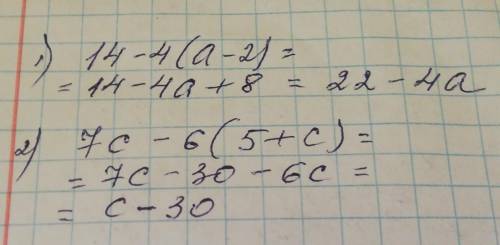 1) 14-4(a-2)=
=14-4a+8 = 22-4a
2) 7c-6(5+c)=
=7c-30-6c=
=c-30